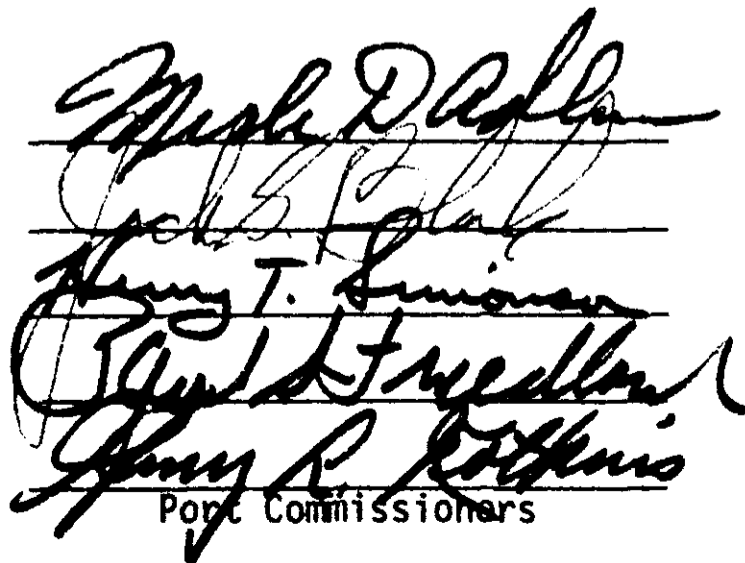 Merle D Adlum
Jack S. Block
Henry T. Simonson
Paul S Friedland
Henry L. Kotkins
Port Commissioners